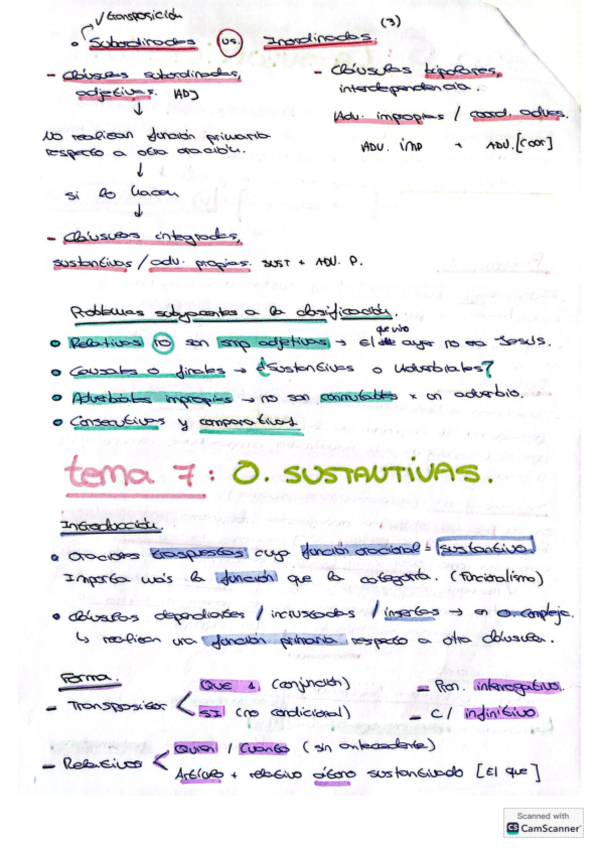 ↗transposición
(3)
• Subordinadas vs. Inordinadas.
- Cláusulas subordinadas,
adjetivas. ADJ
↓
No realizan función primaria
respecto a otra oración.
↓
si lo hacen
↓
- Cláusulas integradas,
sustantivas / adv. propias. SUST + ADV. P.
- Cláusulas bipolares,
interdependencia.
Adv. impropias / coord. advers.
ADV. IMP + ADV. [COOR]
Problemas subyacentes a la clasificación.
• Relativas no son smp adjetivas → El que vino ayer no era Jesús.
• Causales o finales → ¿Sustantivas o Adverbiales?
• Adverbiales impropias → no son conmutables x un adverbio.
• Consecutivas y comparativas.
tema 7: O. SUSTANTIVAS.
Introducción.
• Oraciones traspuestas cuya función oracional = sustantivo
Importa más la función que la categoría. (Funcionalismo)
• Cláusulas dependientes / incrustadas / insertas → en o. compleja.
↳ realizan una función primaria respecto a otra cláusula.
Forma.
- Transpositor < Que 1 (conjunción)
SI (no condicional)
- Pron. interrogativo.
- C/ infinitivo
- Relativos < Quien / Cuanto (sin antecedente)
Artículo + relativo átono sustantivado [El que]
Scanned with
CS CamScanner